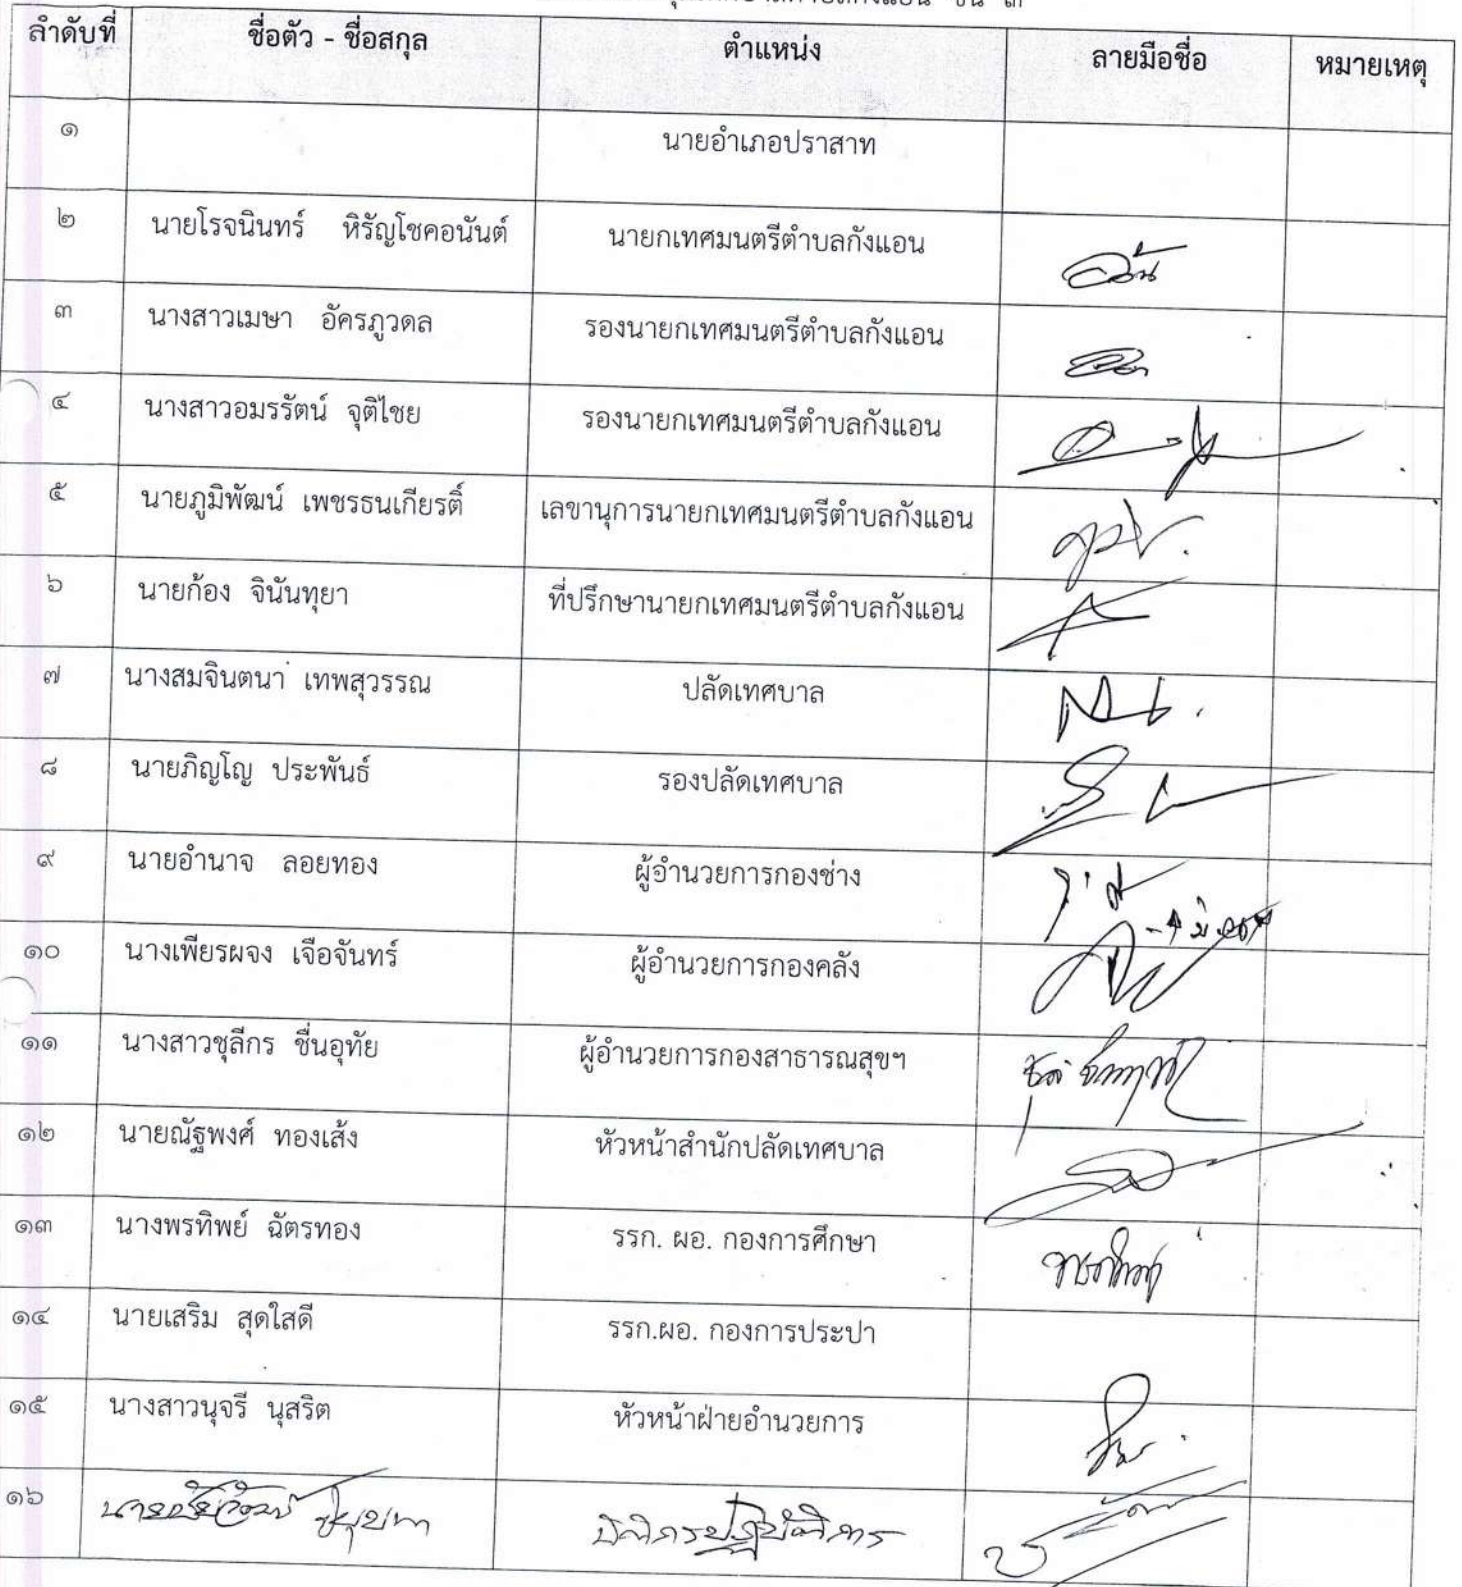 ลำดับที่ ชื่อตัว - ชื่อสกุล ตำแหน่ง ลายมือชื่อ หมายเหตุ
๑ นายอำเภอปราสาท
๒ นายโรจนินทร์ หิรัญโชคอนันต์ นายกเทศมนตรีตำบลกังแอน
๓ นางสาวเมษา อัครภูวดล รองนายกเทศมนตรีตำบลกังแอน
๔ นางสาวอมรรัตน์ จุติไชย รองนายกเทศมนตรีตำบลกังแอน
๕ นายภูมิพัฒน์ เพชรธนเกียรติ์ เลขานุการนายกเทศมนตรีตำบลกังแอน
๖ นายก้อง จินันทุยา ที่ปรึกษานายกเทศมนตรีตำบลกังแอน
๗ นางสมจินตนา เทพสุวรรณ ปลัดเทศบาล
๘ นายภิญโญ ประพันธ์ รองปลัดเทศบาล
๙ นายอำนาจ ลอยทอง ผู้อำนวยการกองช่าง
๑๐ นางเพียรผจง เจือจันทร์ ผู้อำนวยการกองคลัง
๑๑ นางสาวชุลีกร ชื่นอุทัย ผู้อำนวยการกองสาธารณสุขฯ
๑๒ นายณัฐพงศ์ ทองเส้ง หัวหน้าสำนักปลัดเทศบาล
๑๓ นางพรทิพย์ ฉัตรทอง รรก. ผอ. กองการศึกษา
๑๔ นายเสริม สุดใสดี รรก.ผอ. กองการประปา
๑๕ นางสาวนุจรี นุสริต หัวหน้าฝ่ายอำนวยการ
๑๖ นิติกรปฏิบัติการ